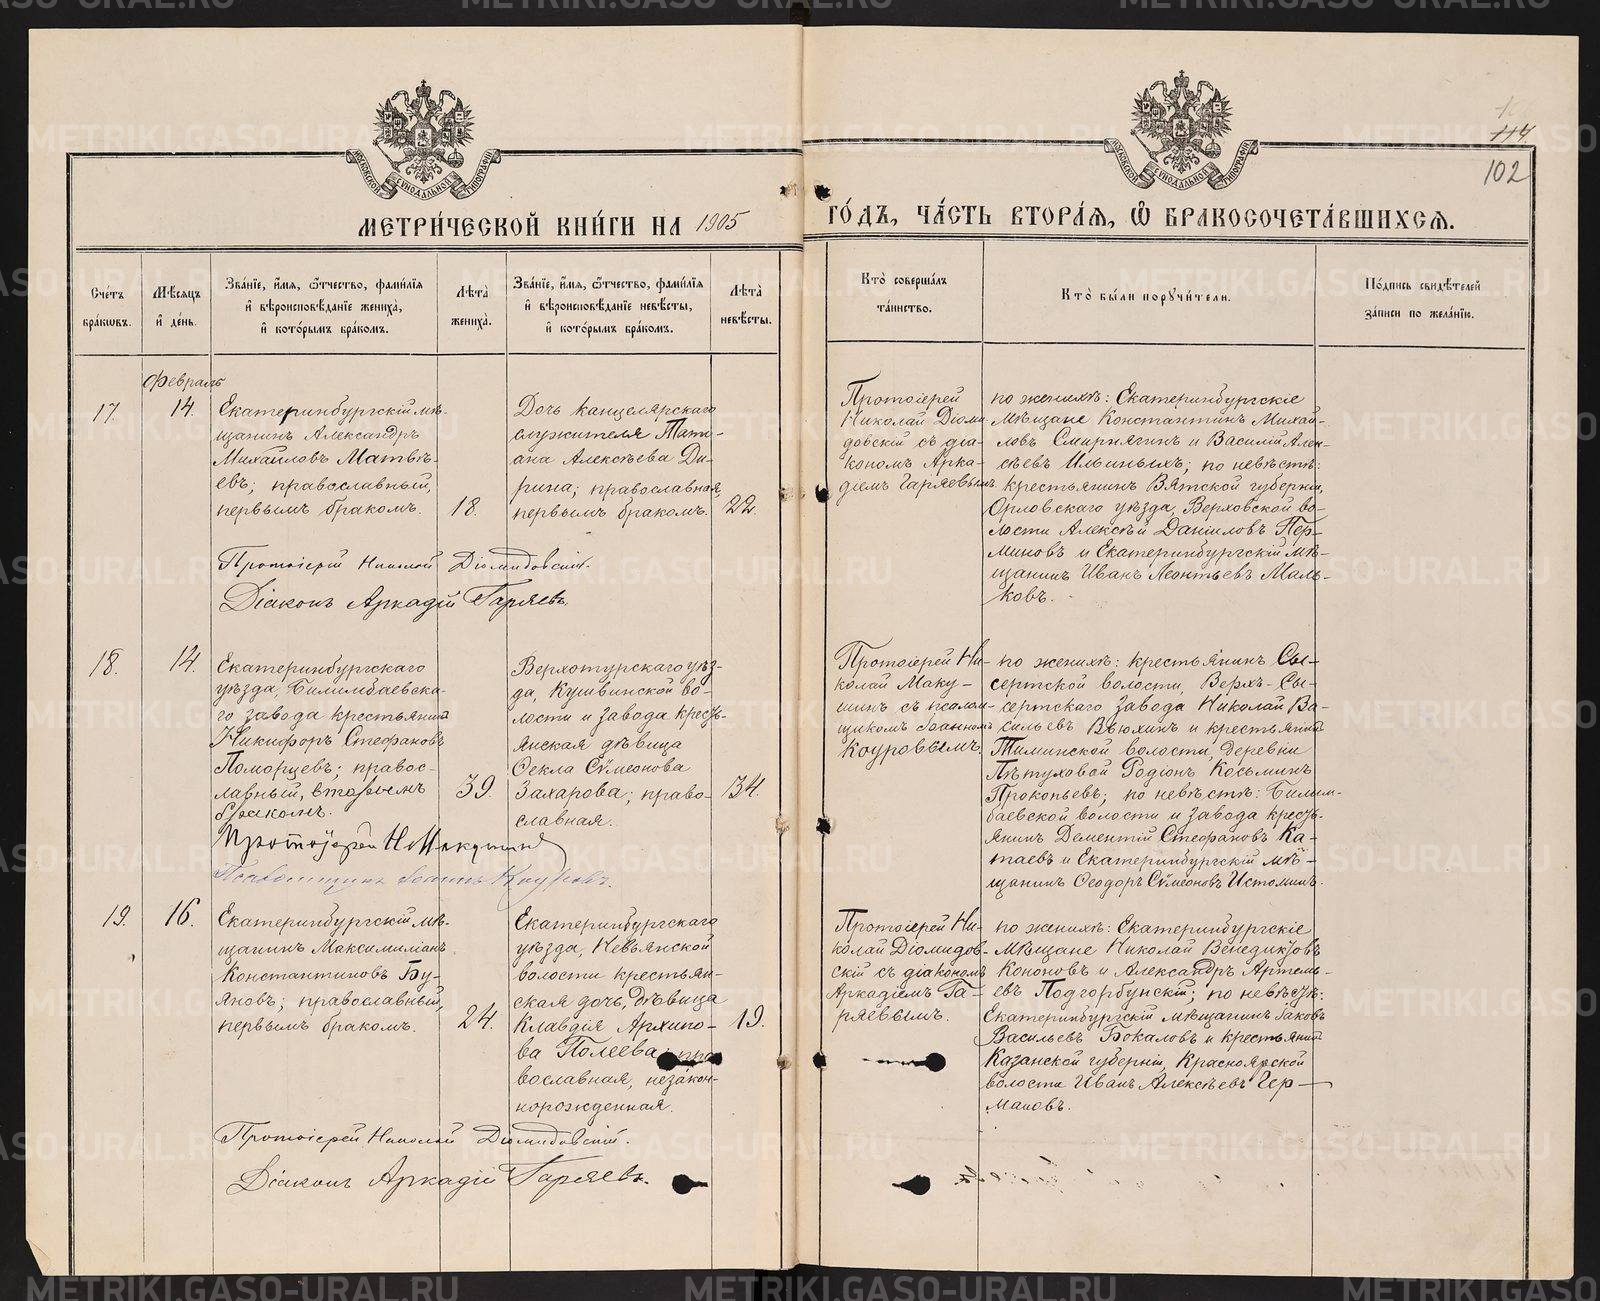 114
102
МЕТРИ́ЧЕСКОЙ КНИ́ГИ НА 1905
ГО́ДЪ, ЧА́СТЬ ВТОРА́Я, Ѡ҆ БРАКОСОЧЕТА́ВШИХСЯ.
Сче́тъ
бра́кѡвъ.
Мѣ́сяцъ
и҆ де́нь.
Зва́нїе, и҆́мя, ѻ҆́тчество, фами́лїя
и҆ вѣроисповѣ́данїе жениха̀,
и҆ кото́рымъ бра́комъ.
Лѣ́та
жениха̀.
Зва́нїе, и҆́мя, ѻ҆́тчество, фами́лїя
и҆ вѣроисповѣ́данїе невѣ́сты,
и҆ кото́рымъ бра́комъ.
Лѣ́та
невѣ́сты.
Кто̀ соверша́лъ
та́инство.
Кто̀ бы́ли поручи́тели.
По́дпись свидѣ́телей
за́писи по жела́нїю.
Февраль
17.
14.
Екатеринбургскій мѣ-
щанинъ Александръ
Михаиловъ Матвѣ-
евъ; православный,
первымъ бракомъ.
18.
Дочь канцелярскаго
служителя Тати-
ана Алексѣева Ди-
рина; православная,
первымъ бракомъ.
22.
Протоіерей
Николай Діоми-
довскій съ діа-
кономъ Арка-
діемъ Гаряевымъ.
по женихѣ: Екатеринбургскіе
мѣщане Константинъ Михай-
ловъ Смирнягинъ и Василій Алек-
сѣевъ Ильиныхъ; по невѣстѣ:
крестьянинъ Вятской губерніи,
Орловскаго уѣзда, Верховской во-
лости Алексѣй Даниловъ Пер-
миновъ и Екатеринбургскій мѣ-
щанинъ Иванъ Леонтьевъ Маль-
ковъ.
Протоіерей Николай Діомидовскій.
Діаконъ Аркадій Гаряевъ.
18.
14.
Екатеринбургскаго
уѣзда, Билимбаевска-
го завода крестьянинъ
Никифоръ Стефановъ
Поморцевъ; правос-
лавный, вторымъ
бракомъ.
39.
Верхотурскаго уѣз-
да, Кушвинской во-
лости и завода кресть-
янская дѣвица
Ѳекла Сѵмеонова
Захарова; право-
славная.
34.
Протоіерей Ни-
колай Маку-
шинъ съ псалом-
щикомъ Іоанномъ
Коуровымъ.
по женихѣ: крестьянинъ Сы-
сертской волости, Верхъ-Сы-
сертскаго завода Николай Ва-
сильевъ Вьюхинъ и крестьянинъ
Тиминской волости, деревни
Пѣтуховой Родіонъ Косьминъ
Прокопьевъ; по невѣстѣ: Билим-
баевской волости и завода кресть-
янинъ Дементій Стефановъ Ка-
таевъ и Екатеринбургскій мѣ-
щанинъ Ѳеодоръ Сѵмеоновъ Истоминъ.
Протоіерей Н. Макушинъ
Псаломщикъ Іоаннъ Коуровъ.
19.
16.
Екатеринбургскій мѣ-
щанинъ Максимиліанъ
Константиновъ Бу-
яновъ; православный,
первымъ бракомъ.
24.
Екатеринбургскаго
уѣзда, Невьянской
волости крестьян-
ская дочь, дѣвица
Клавдія Архипо-
ва Полеева; пра
вославная, незакон-
норожденная.
19.
Протоіерей Ни-
колай Діомидов-
скій съ діакономъ
Аркадіемъ Га-
ряевымъ.
по женихѣ: Екатеринбургскіе
мѣщане Николай Венедиктовъ
Кононовъ и Александръ Артемь-
евъ Подгорбунскій; по невѣстѣ:
Екатеринбургскій мѣщанинъ Іаковъ
Васильевъ Бокаловъ и крестьянинъ
Казанской губерніи, Красноярской
волости Иванъ Алексѣевъ Гер-
мановъ.
Протоіерей Николай Діомидовскій.
Діаконъ Аркадій Гаряевъ.